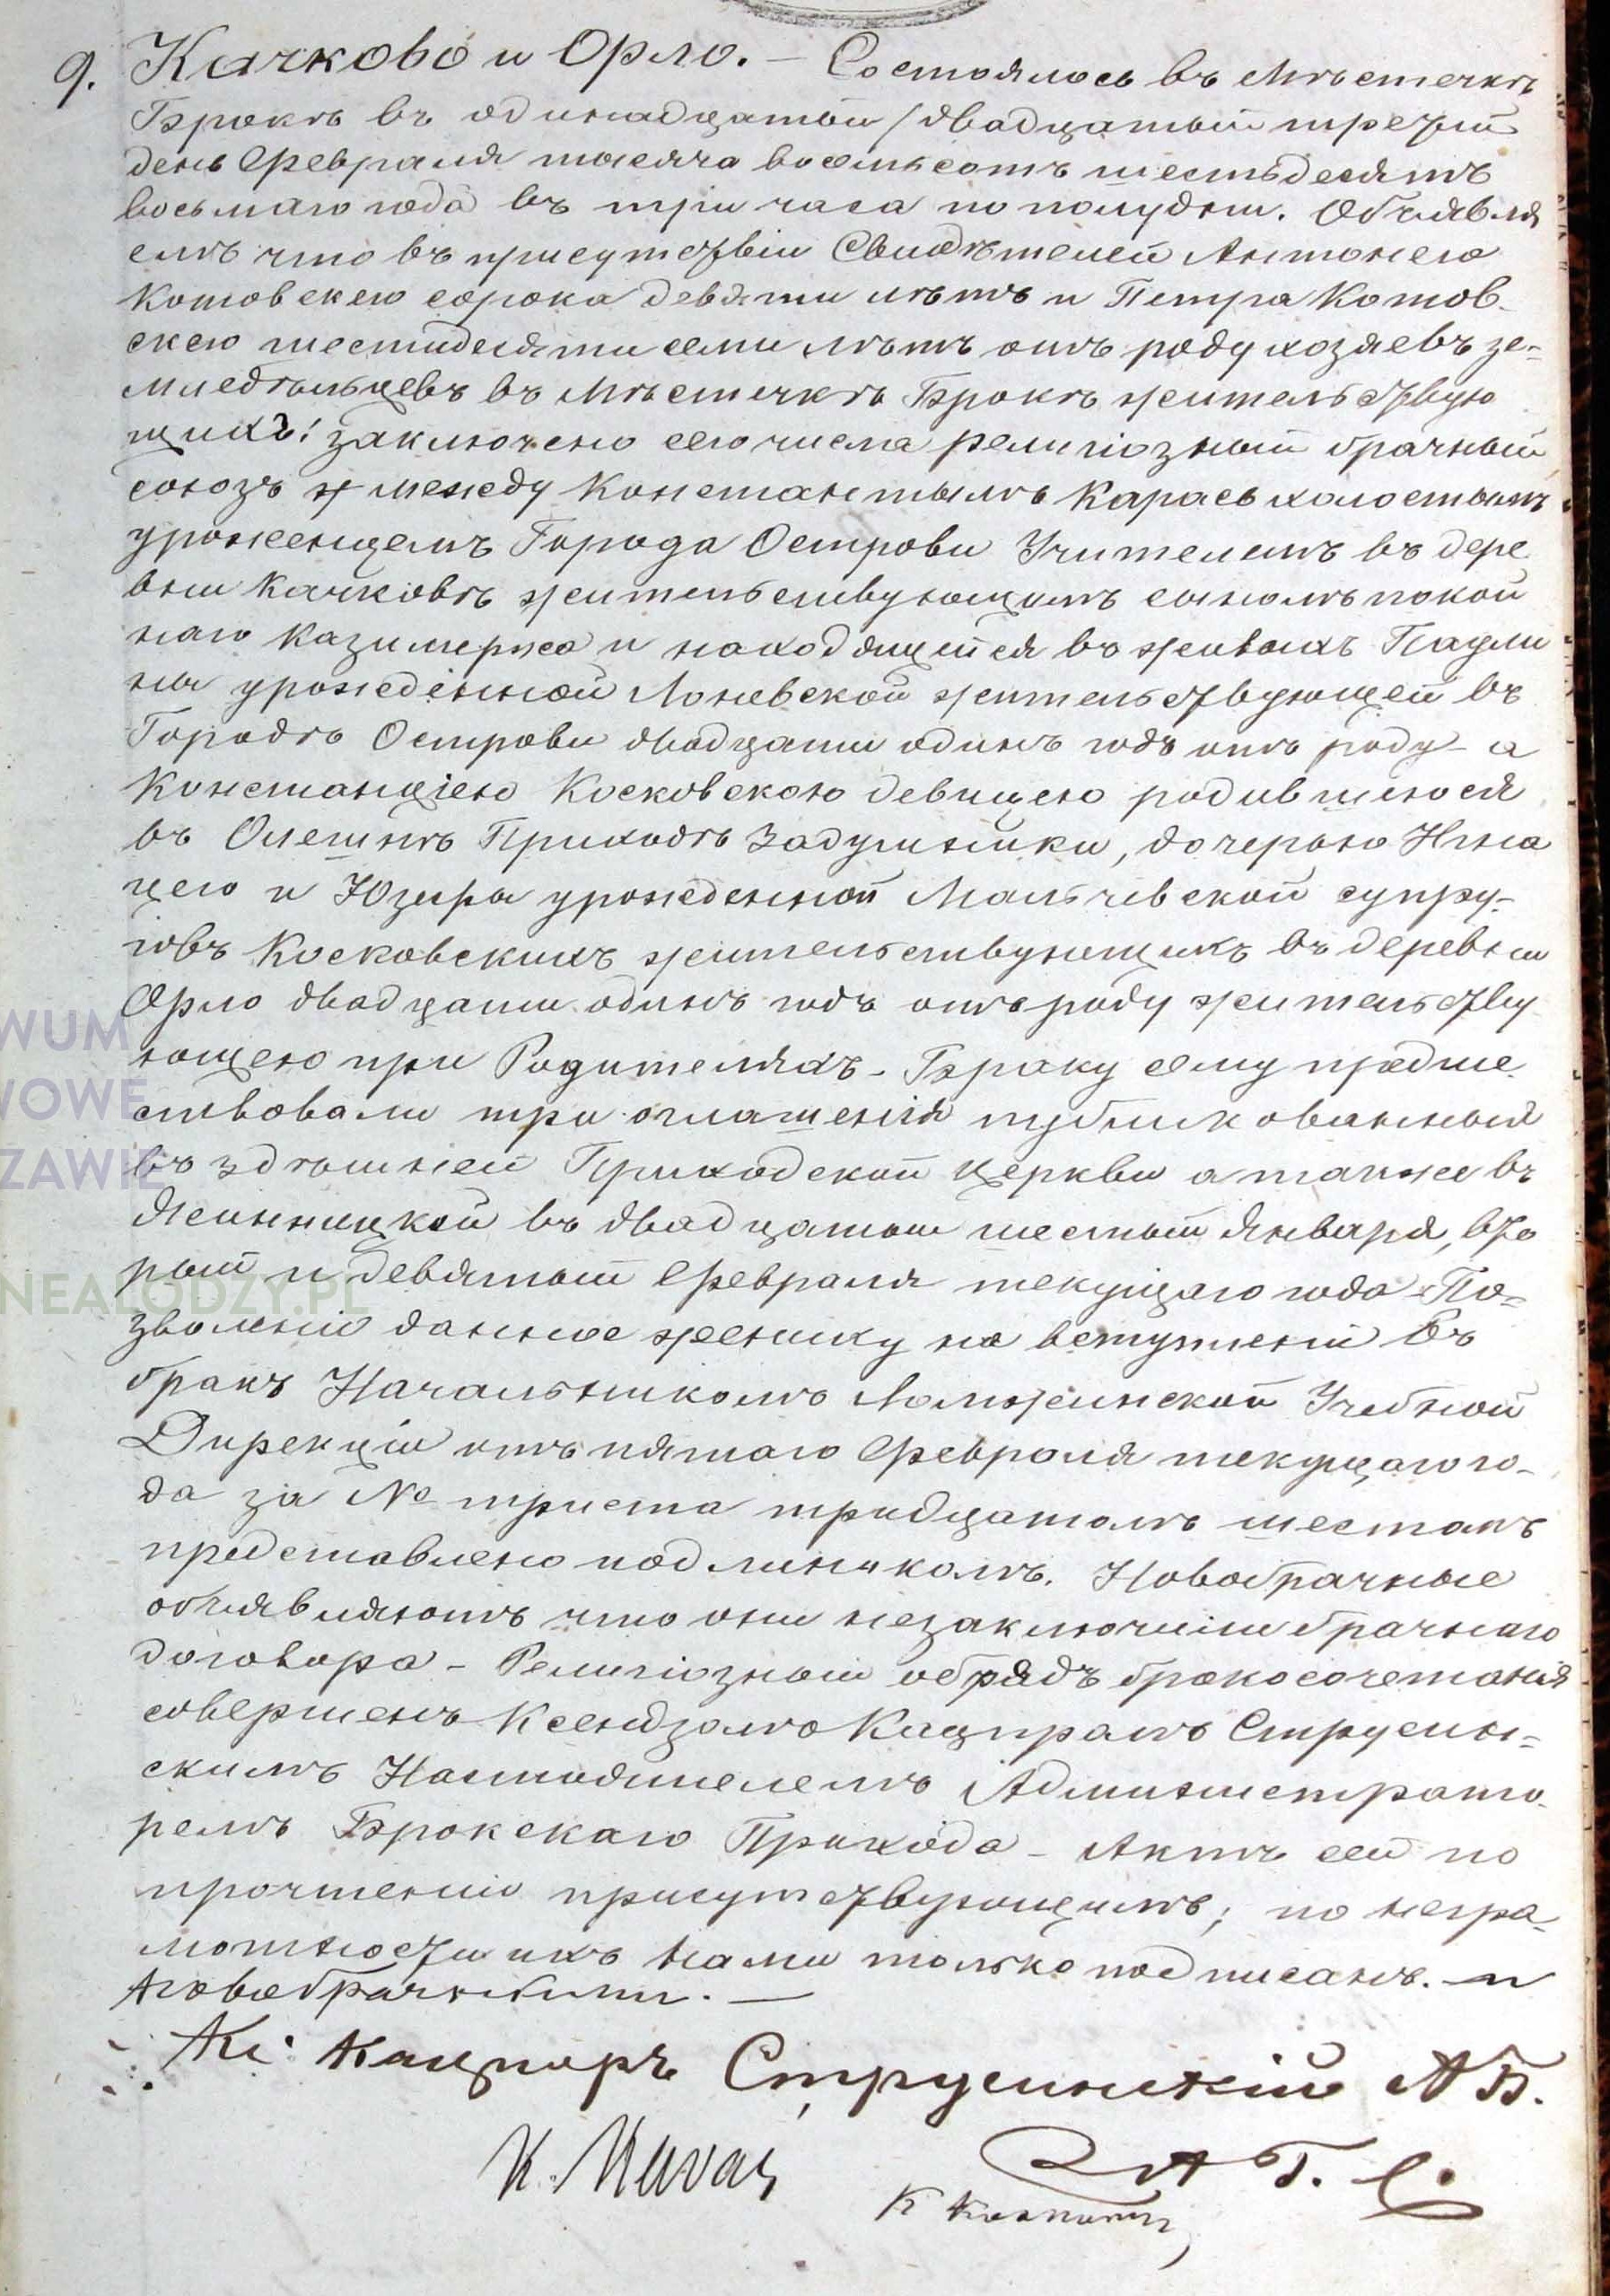 9. Качково и Орло. – Состоялось въ Мѣстечкѣ
Брокѣ въ одинадцатый / двадцатый третій
день Февраля тысяча восемьсотъ шестьдесятъ
восьмаго года въ три часа по полудни. Объявля
емъ что въ присутствіи Свидѣтелей Антонего
Котовскего сорока девяти лѣтъ и Петра Котов-
скего шестидесяти семи лѣтъ отъ роду хозяевъ зе-
мледѣльцевъ въ Мѣстечкѣ Брокѣ жительствую
щихъ: заключено сего числа религіозный брачный
союзъ между Константымъ Карась холостымъ
уроженцемъ Города Острови Учителемъ въ дере
вни Качковѣ жительствующимъ сыномъ покой
наго Казимержа и находящейся въ живыхъ Паули
ны урожденной Лоневской жительствующей въ
Городѣ Острови двадцати одинъ годъ отъ роду – а
Констанціею Косковскою девицею родившеюся
въ Олешнѣ Приходѣ Задушники, дочерью Игна
цего и Юзефы урожденной Мальчевской супру-
говъ Косковскихъ жительствующихъ въ деревни
Орло двадцати одинъ годъ отъ роду жительству
ющею при Родителяхъ – Браку сему предше
ствовали три оглашенія публикованныя
въ здѣшней Приходской церкви а также въ
Ясинницкой въ двадцатый шестый Января, вто
рый и девятый Февраля текущаго года – По-
зволеніе данное женику на вступленій въ
бракъ Начальникомъ Ломжинской Учебной
Дирекціи отъ пятаго Февраля текущаго го-
да за № триста тридцатомъ шестомъ
представлено подлинникомъ. Новобрачные
объявляютъ что они незаключили брачнаго
договора – Религіозный обрядъ бракосочетанія
совершенъ Ксендзомъ Кацпромъ Струсин-
скимъ Настоятелемъ Администрато-
ремъ Брокскаго Прихода – Актъ сей по
прочтеніи присутствующимъ; по негра
мотности ихъ нами только подписанъ. – и
новобрачными. –
Кс: Кацпоръ Струсинскій А Б.
А Г. С.
К. Карась
К Косковск